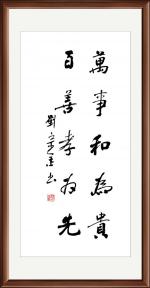 萬事和為貴
百善孝為先